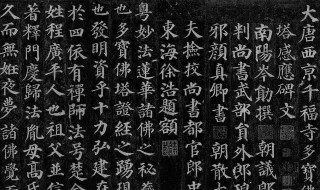 大唐西京千福寺多寶佛
塔感應碑文
南陽岑勛撰 朝議郎
判尚書武部員外郎琅
邪顏真卿書 朝散大
夫撿挍尚書都官郎中
東海徐浩題額
粵妙法蓮華諸佛之秘
也多寶佛塔證經之踴現
也發明資乎十力弘建在
於四依有禪師法號楚金
姓程廣平人也祖父並信
著釋門慶歸法胤母高氏
久而無妊夜夢諸佛覺而